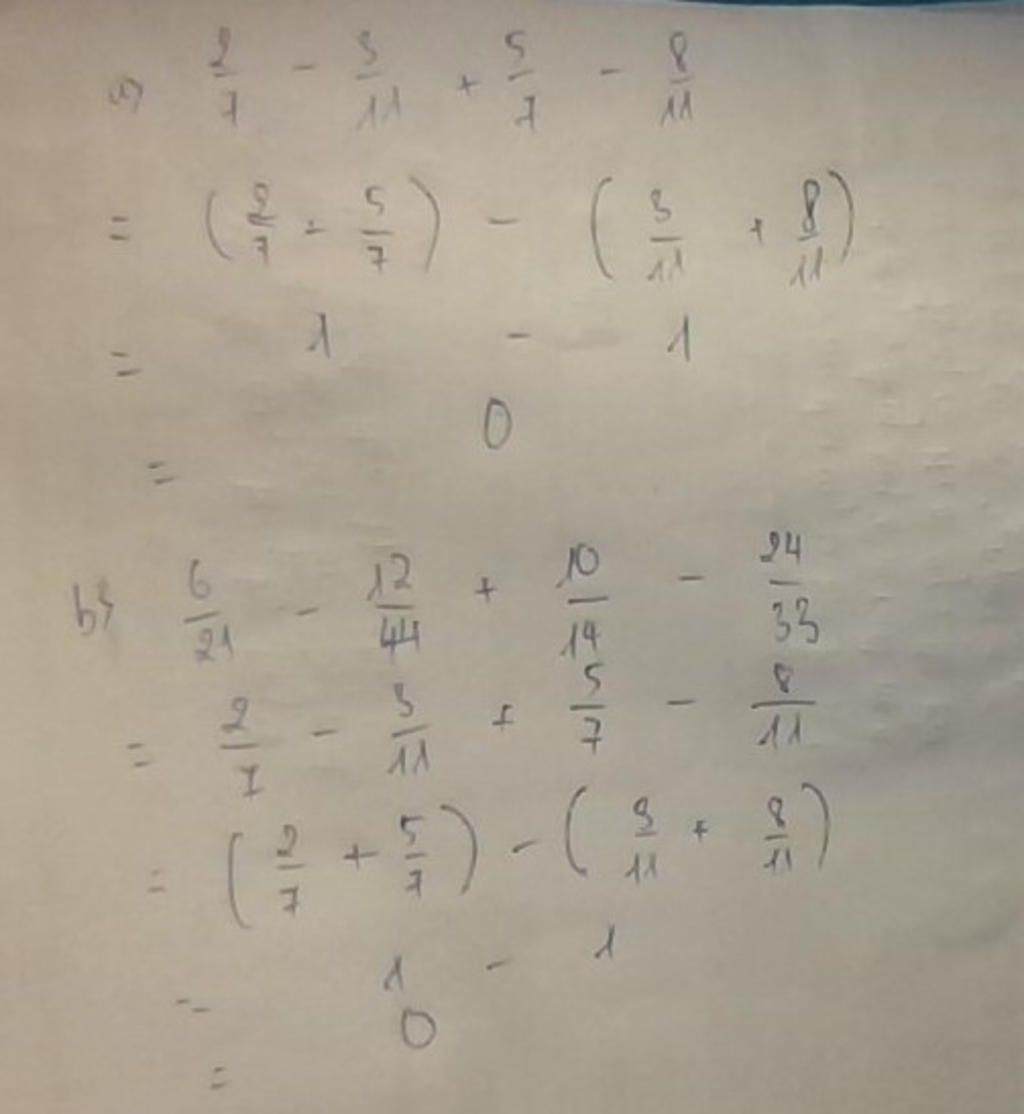 a) 2/7 - 3/11 + 5/7 - 8/11
= (2/7 + 5/7) - (3/11 + 8/11)
= 1 - 1
= 0
b) 6/21 - 12/44 + 10/14 - 24/33
= 2/7 - 3/11 + 5/7 - 8/11
= (2/7 + 5/7) - (3/11 + 8/11)
= 1 - 1
= 0